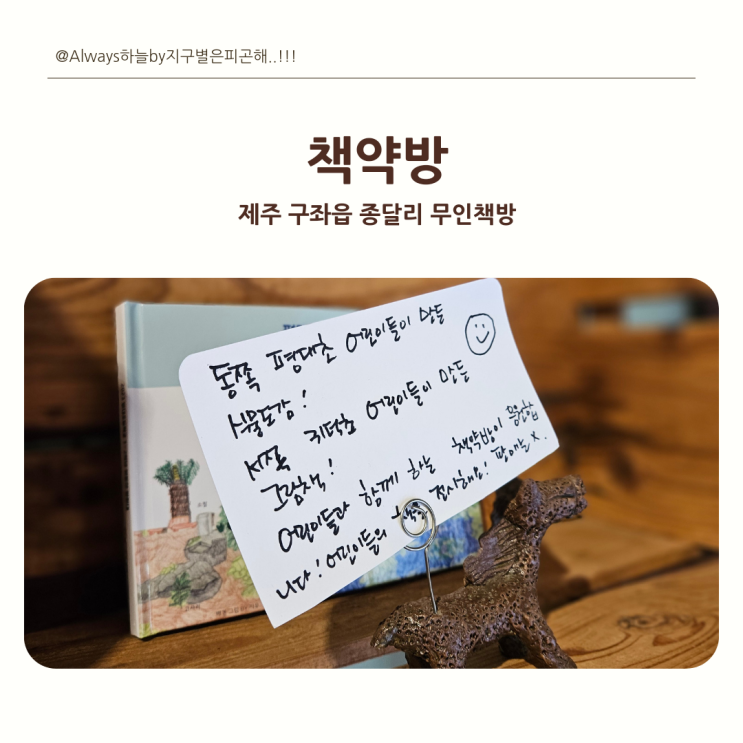 @Always하늘by지구별은피곤해..!!!
책약방
제주 구좌읍 종달리 무인책방
동쪽 평대초 어린이들이 만든
식물도감!
서쪽 귀덕초 어린이들이 만든
그림책!
어린이들과 함께 하는 책약방이 응원합
니다! 어린이들의 책을 전시해요! 판매는 x.